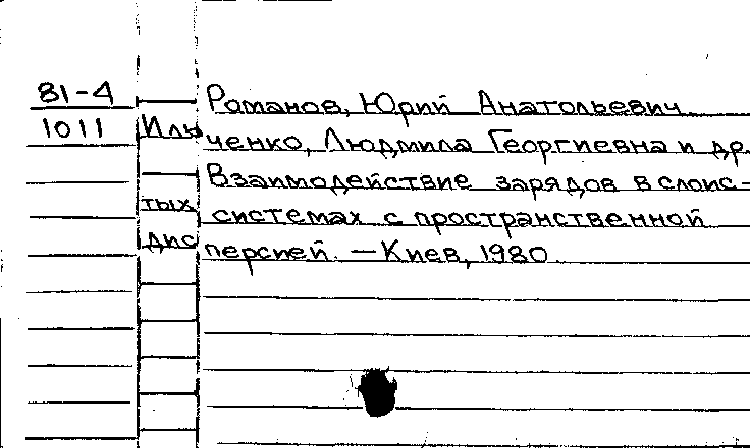 81-4 Романов, Юрий Анатольевич
1011 Ильченко, Людмила Георгиевна и др.
Взаимодействие зарядов в слоис-
тых системах с пространственной
дисперсией. — Киев, 1980.